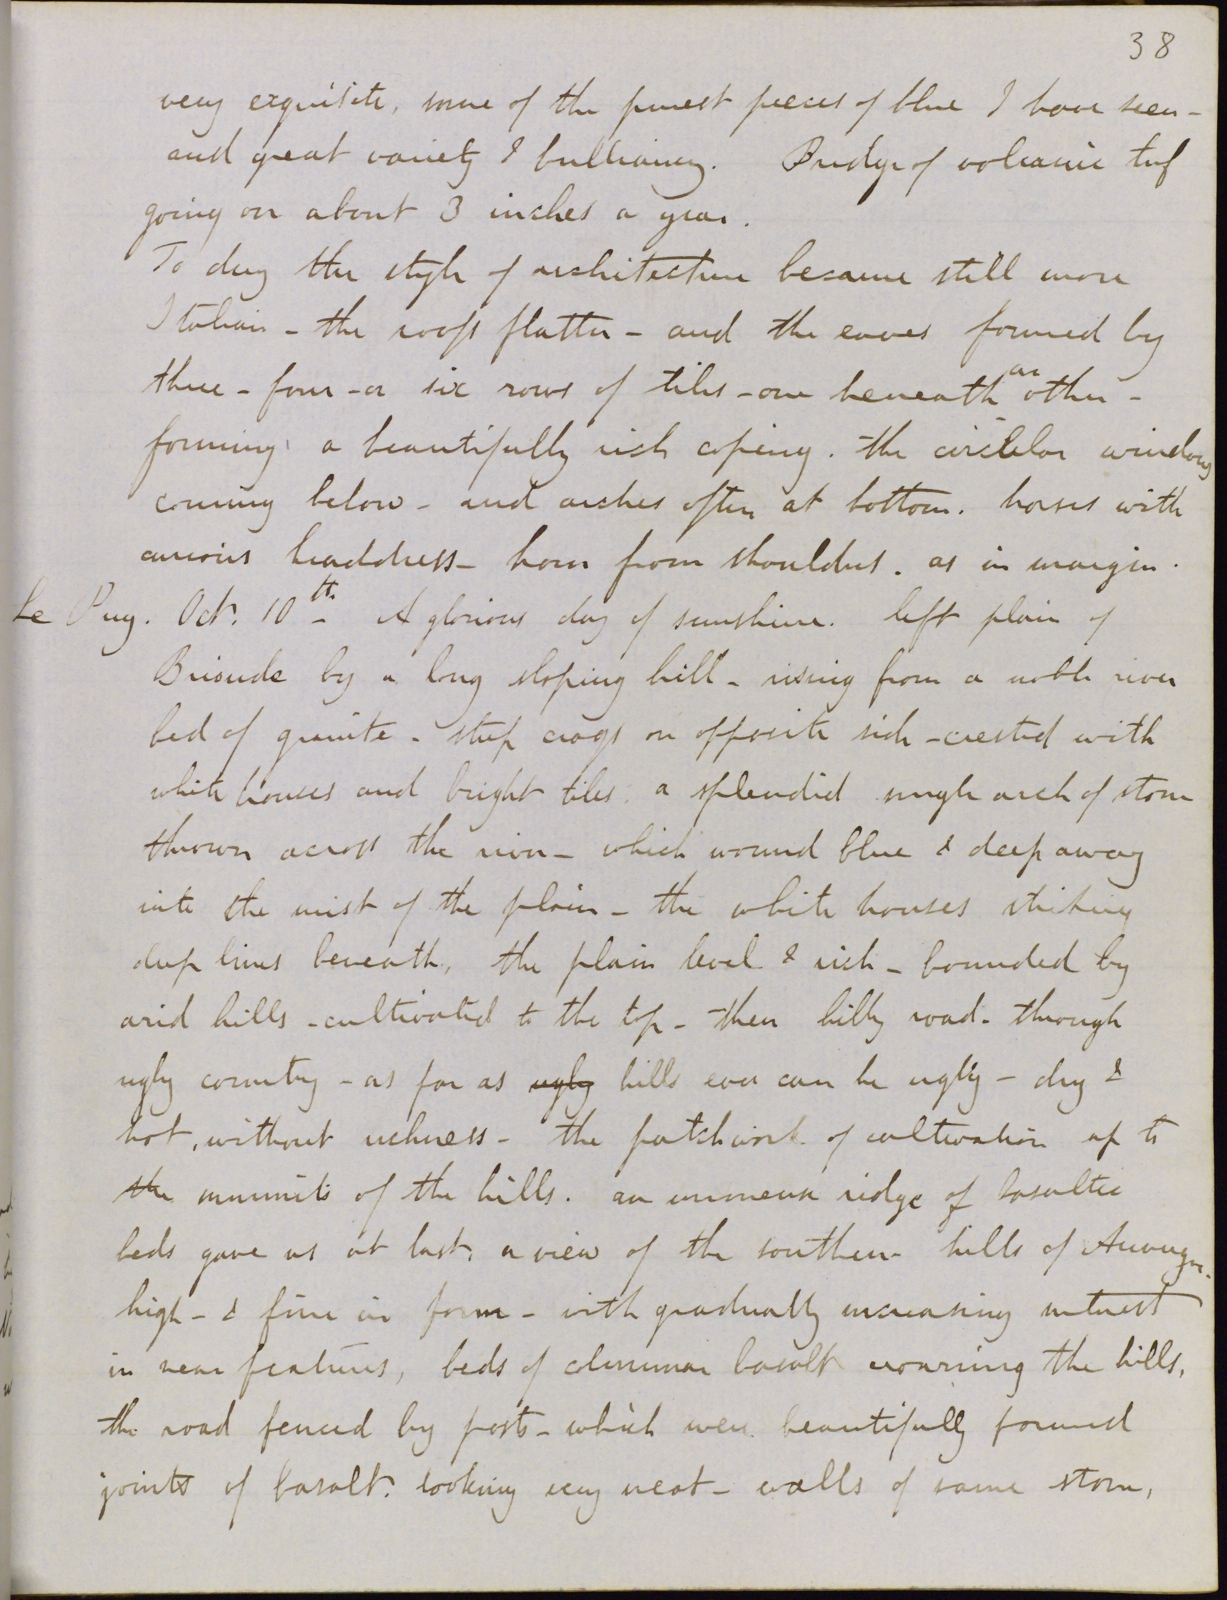 38
very exquisite, some of the purest pieces of blue I have seen -
and great variety & brilliancy. Bridge of volcanic tuf
going on about 3 inches a year.
To day the style of architecture became still more
Italian - the roofs flatter - and the eaves formed by
three - four - or six rows of tiles - one beneath an other -
forming a beautifully rich coping. the circular windows
coming below - and arches often at bottom. horses with
curious headdress - horn from shoulders. as in margin.
Le Puy. Oct. 10th. A glorious day of sunshine. left plain of
Brioude by a long sloping hill - rising from a noble river
bed of granite - steep crags on opposite side - crested with
white houses and bright tiles. a splendid single arch of stone
thrown across the river - which wound blue & deep away
into the mist of the plain - the white houses striking
deep lines beneath, the plain level & rich - bounded by
arid hills - cultivated to the top - then hilly road - through
ugly country - as far as ugly hills ever can be ugly - dry &
hot, without richness - the patchwork of cultivation up to
the summits of the hills. an immense ridge of basaltic
beds gave us at last, a view of the southern hills of Auvergne.
high - & fine in form - with gradually increasing interest
in near features, beds of columnar basalt crowning the hills,
the road fenced by posts - which were beautifully formed
joints of basalt. looking very neat - walls of same stone,